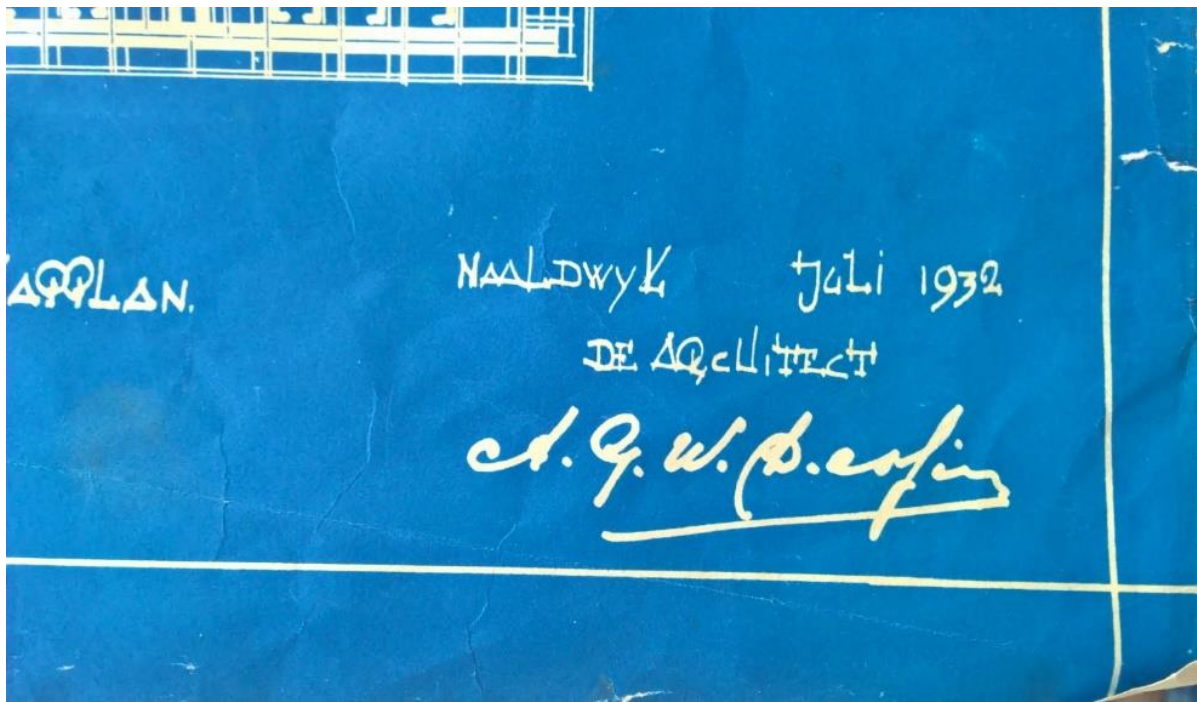 APPLAN.
NAALDWYK JULI 1932
DE ARCHITECT
A. G. W. D.